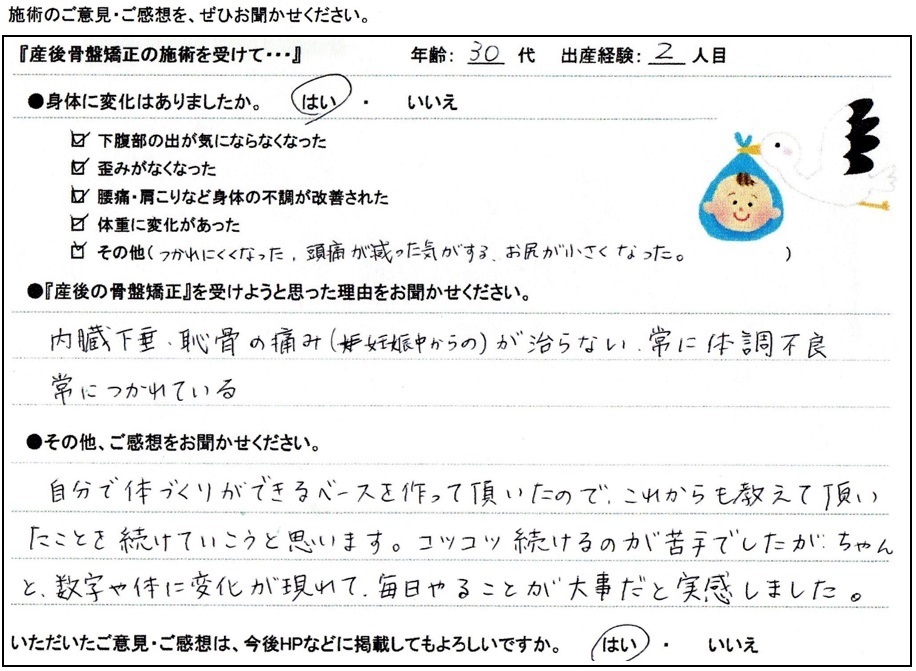 施術のご意見・ご感想を、ぜひお聞かせください。
『産後骨盤矯正の施術を受けて・・・』 年齢: 30 代 出産経験: 2 人目
●身体に変化はありましたか。 はい ・ いいえ
☑ 下腹部の出が気にならなくなった
☑ 歪みがなくなった
☑ 腰痛・肩こりなど身体の不調が改善された
☑ 体重に変化があった
☑ その他(つかれにくくなった、頭痛が減った気がする、お尻が小さくなった。 )
●『産後の骨盤矯正』を受けようと思った理由をお聞かせください。
内臓下垂、恥骨の痛み(妊娠中からの)が治らない、常に体調不良
常につかれている
●その他、ご感想をお聞かせください。
自分で体づくりができるベースを作って頂いたので、これからも教えて頂い
たことを続けていこうと思います。コツコツ続けるのが苦手でしたが、ちゃん
と、数字や体に変化が現れて、毎日やることが大事だと実感しました。
いただいたご意見・ご感想は、今後HPなどに掲載してもよろしいですか。 はい ・ いいえ